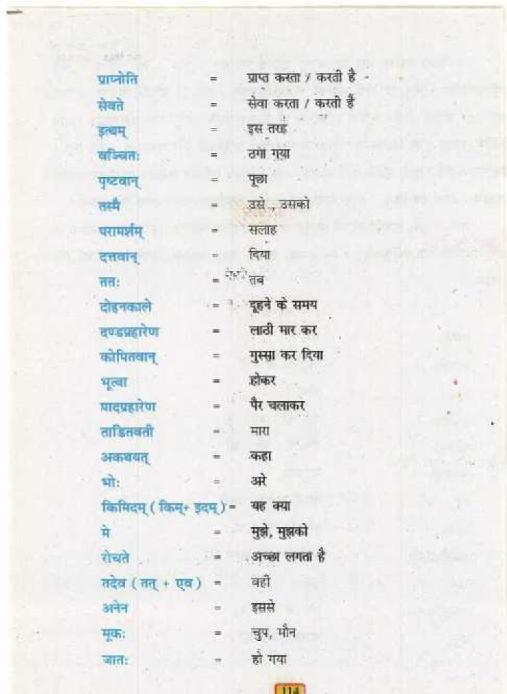 प्राप्नोति = प्राप्त करता / करती है
सेवते = सेवा करता / करती है
इत्थम् = इस तरह
वञ्चितः = ठगा गया
पृष्टवान् = पूछा
तस्मै = उसे , उसको
परामर्शम् = सलाह
दत्तवान् = दिया
ततः = तब
दोहनकाले = दूहने के समय
दण्डप्रहारेण = लाठी मार कर
कोपितवान् = गुस्सा कर दिया
भूत्वा = होकर
पादप्रहारेण = पैर चलाकर
ताडितवती = मारा
अकथयत् = कहा
भोः = अरे
किमिदम् ( किम्+ इदम् ) = यह क्या
मे = मुझे, मुझको
रोचते = अच्छा लगता है
तदेव ( तत् + एव ) = वही
अनेन = इससे
मूकः = चुप, मौन
जातः = हो गया
114